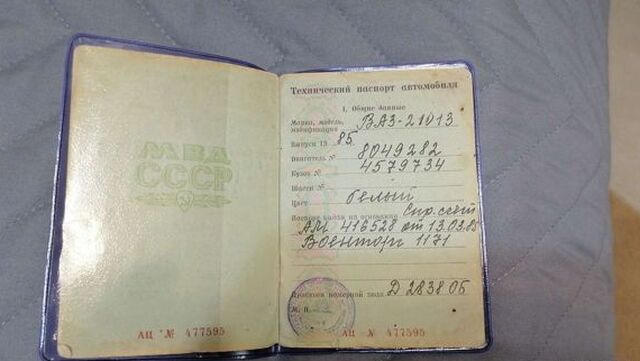 МВД
СССР
АЦ № 477595
Технический паспорт автомобиля
1. Общие данные
Марка, модель,
модификация ВАЗ-21013
Выпуск 19 85
Двигатель № 8049282
Кузов № 4579734
Шасси №
Цвет белый
Паспорт выдан на основании Спр. счет
АМ 416528 от 13.03.85
Военторг 1171
номерной знак Д 2838 ОБ
М. П.
АЦ № 477595